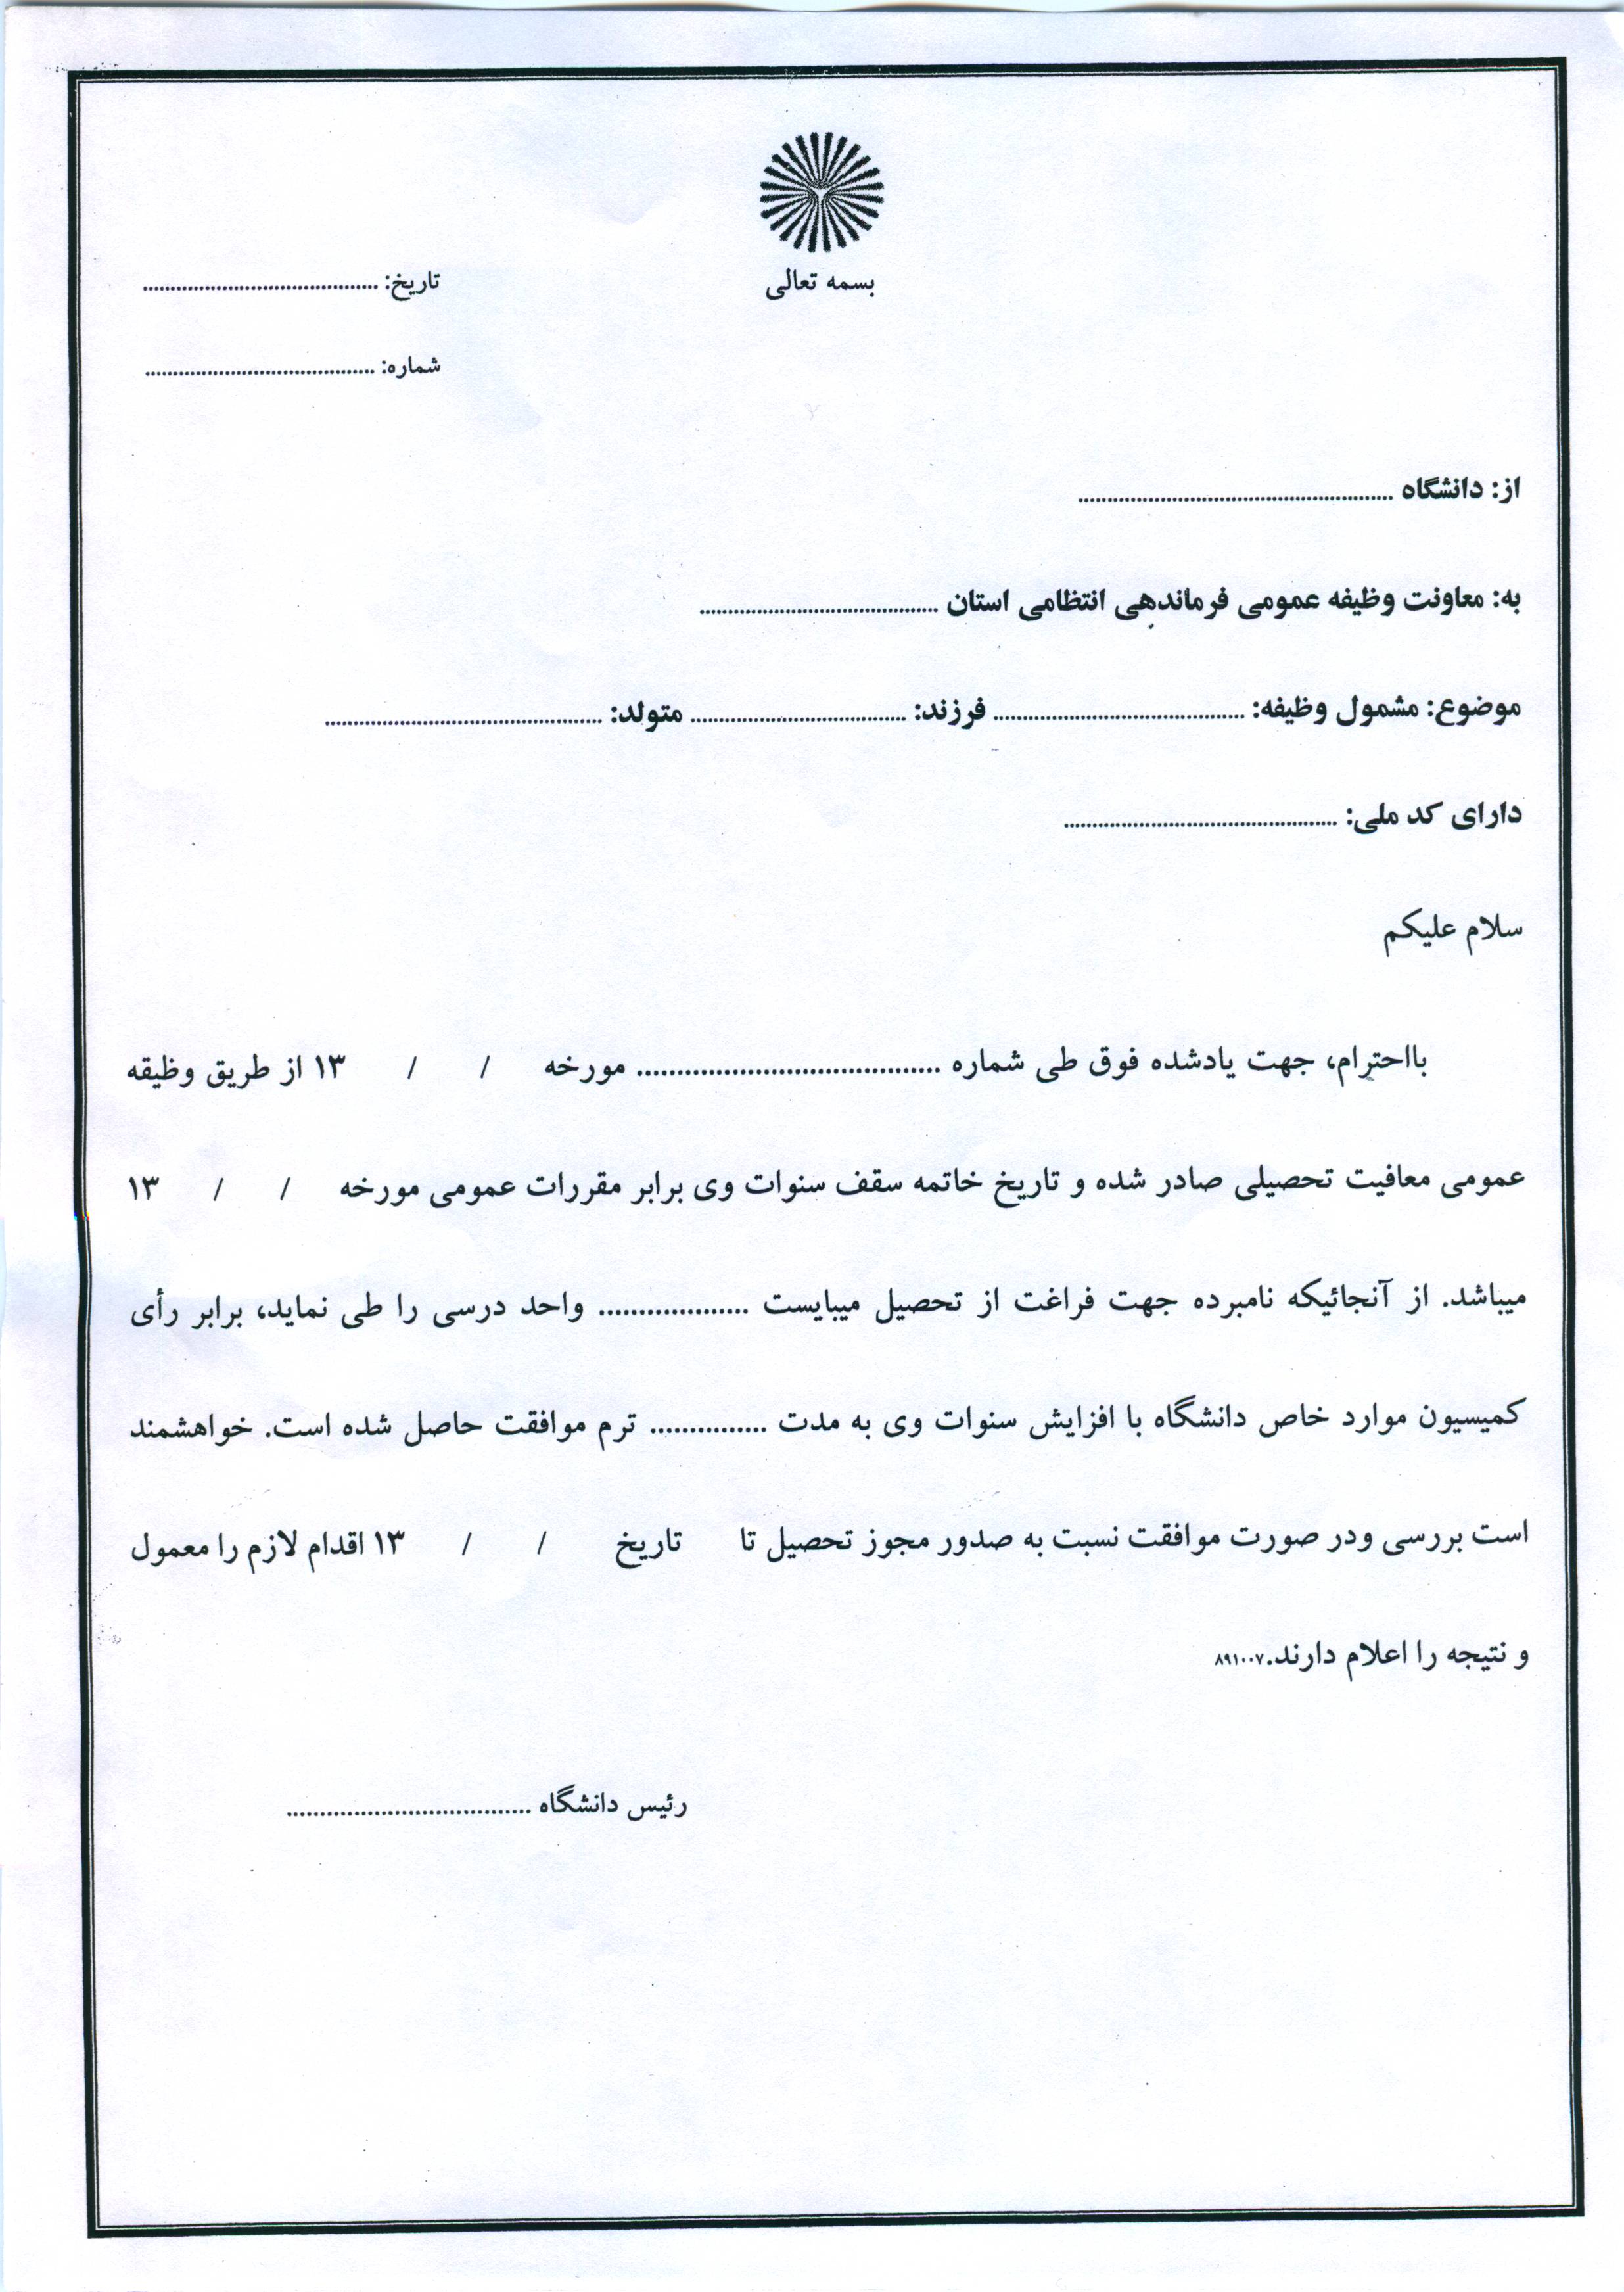 بسمه تعالی
تاریخ: ........................................
شماره: ........................................
از: دانشگاه ........................................
به: معاونت وظیفه عمومی فرماندهی انتظامی استان ........................................
موضوع: مشمول وظیفه: ........................................ فرزند: ........................................ متولد: ........................................
دارای کد ملی: ........................................
سلام علیکم
بااحترام، جهت یادشده فوق طی شماره ........................................ مورخه / / ۱۳ از طریق وظیقه
عمومی معافیت تحصیلی صادر شده و تاریخ خاتمه سقف سنوات وی برابر مقررات عمومی مورخه / / ۱۳
میباشد. از آنجائیکه نامبرده جهت فراغت از تحصیل میبایست .................. واحد درسی را طی نماید، برابر رأی
کمیسیون موارد خاص دانشگاه با افزایش سنوات وی به مدت ............... ترم موافقت حاصل شده است. خواهشمند
است بررسی ودر صورت موافقت نسبت به صدور مجوز تحصیل تا تاریخ / / ۱۳ اقدام لازم را معمول
و نتیجه را اعلام دارند.۸۹۱۰۰۷
رئیس دانشگاه ........................................